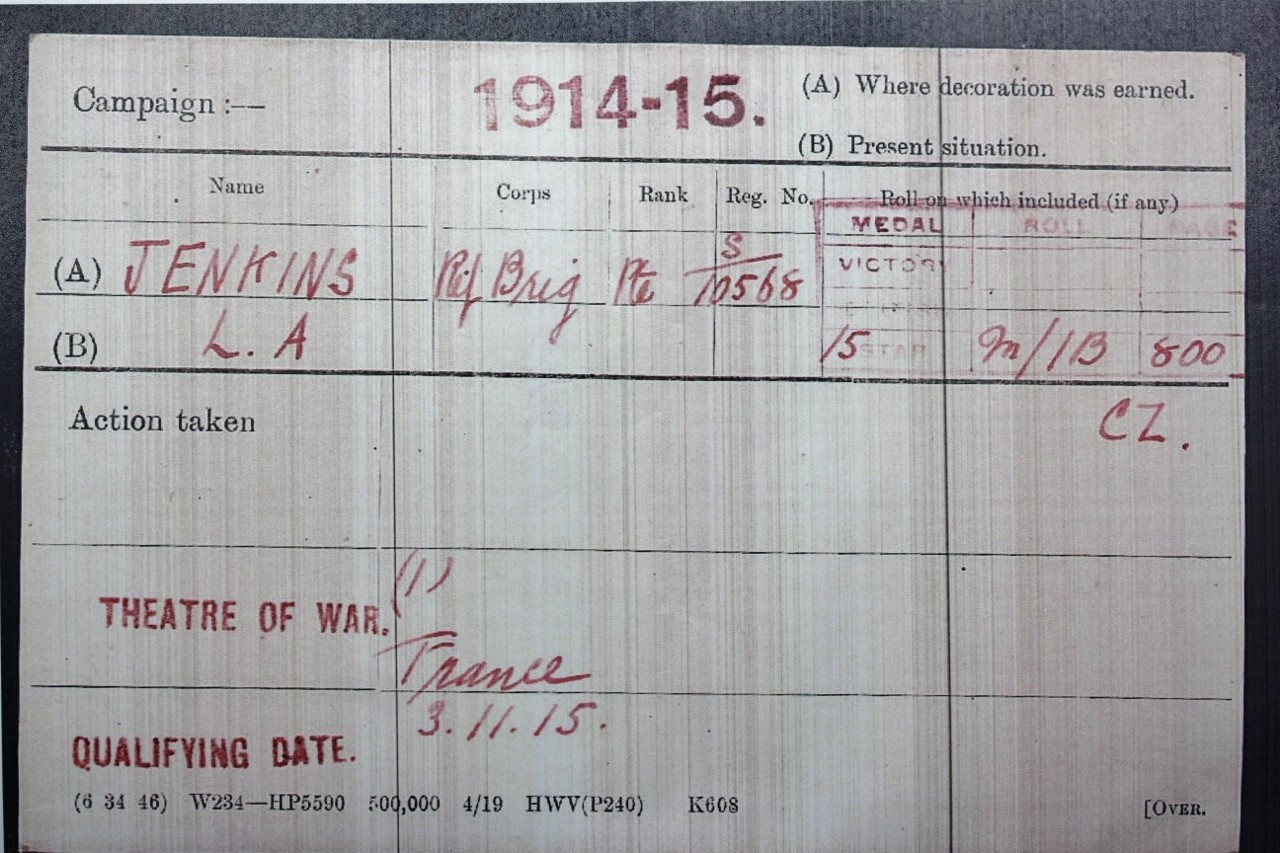 Campaign :—— 1914-15. (A) Where decoration was earned.
(B) Present situation.
Name Corps Rank Reg. No. Roll on which included (if any)
MEDAL ROLL PAGE
(A) JENKINS Rif Brig Pte S/10568 VICTORY
(B) L. A 15 STAR M/1B 800
Action taken CZ.
(1)
THEATRE OF WAR. France
QUALIFYING DATE. 3.11.15.
(6 34 46) W234—HP5590 500,000 4/19 HWV(P240) K608 [OVER.